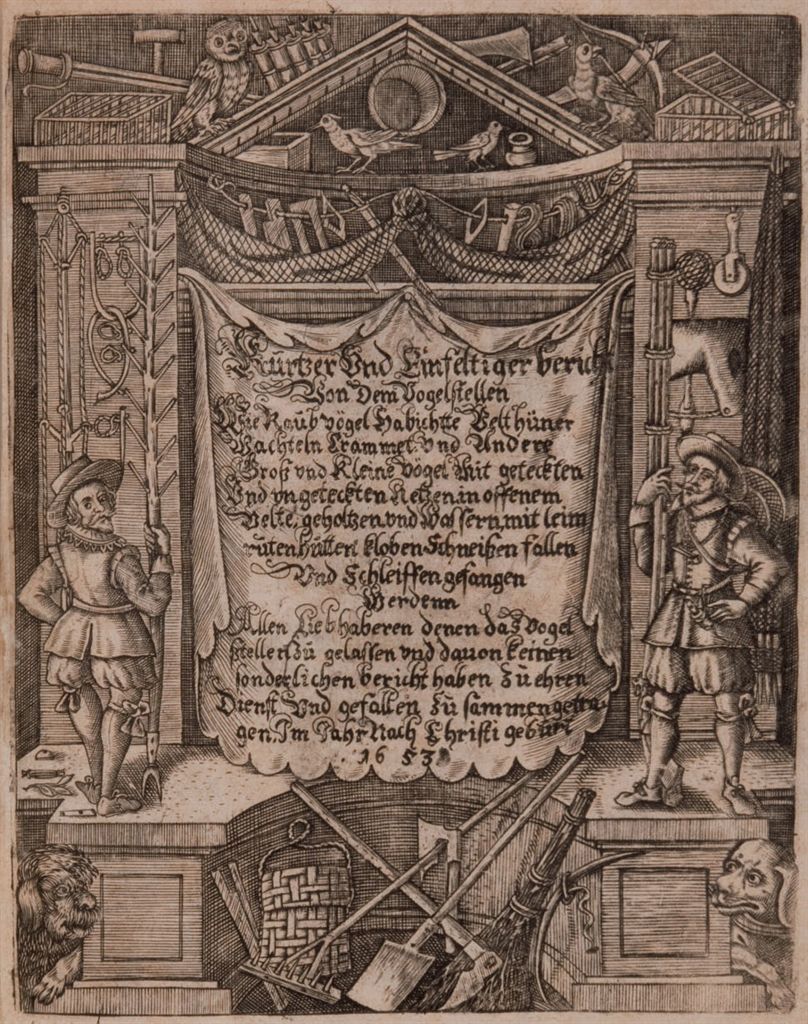 Kürtzer Und Einfeltiger bericht
Von Dem Vogelstellen
Wie Raub vögel Habichtte Velthüner
Wachteln Crammet. und Andere
Groß vnd Kleine Vögel Mit geteckten
Vnd vngeteckten Netzen in offenem
Velte, geholtzen vnd Wassern, mit leim
rutenhütten kloben Schneißen fallen
Und Schleiffen gefangen
Werdenn
Allen Liebhaberen denen das Vogel
stellen zü gelassen vnd dauon keinen
sonderlichen bericht haben Zu ehren
Dienst Und gefallen Zü sammen getra
gen. Im Jahr Nach Christi gebürt
1653